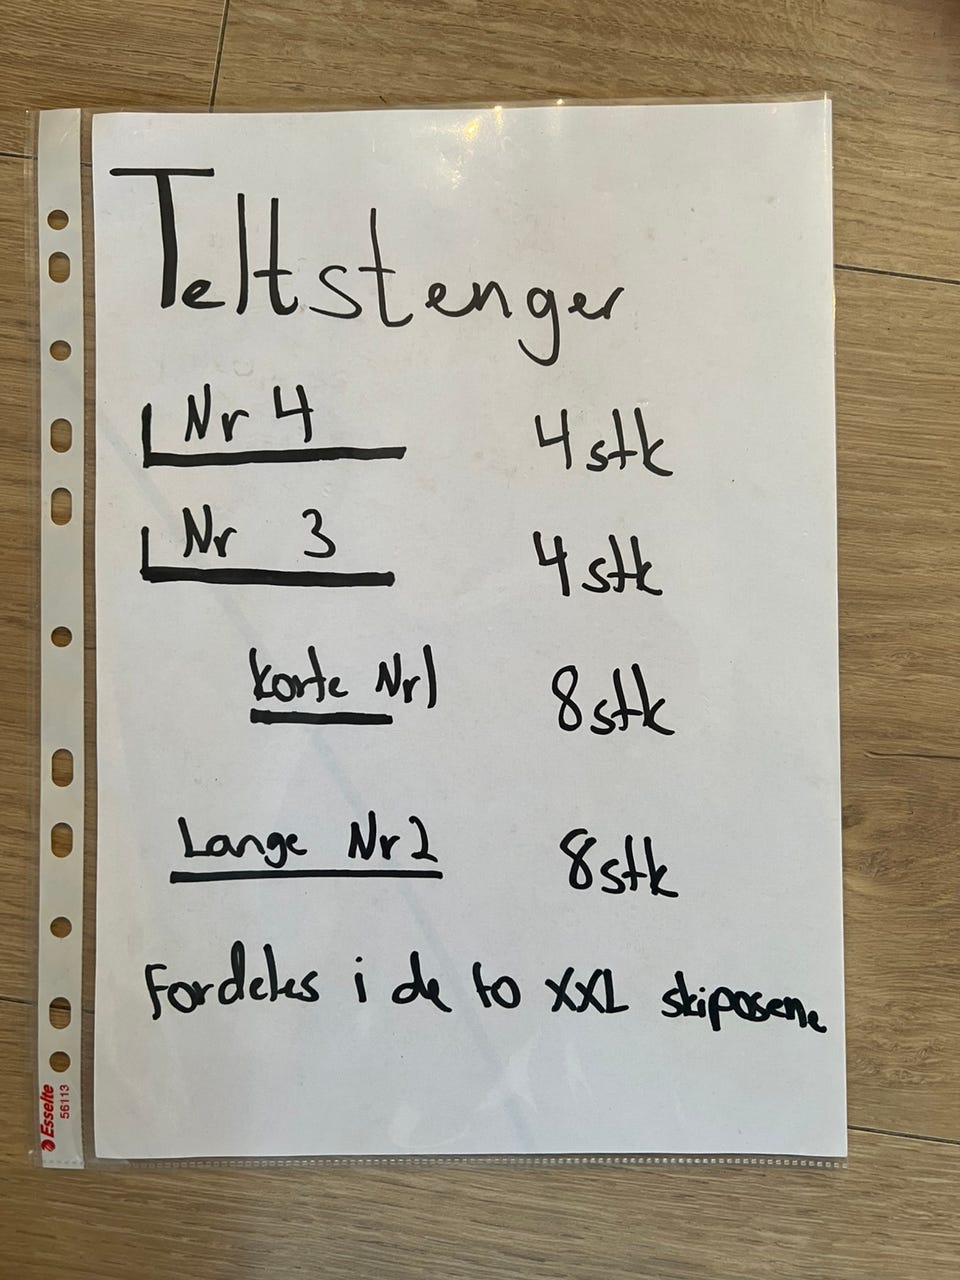 Teltstenger
Nr 4 4 stk
Nr 3 4 stk
korte Nr1 8 stk
Lange Nr2 8 stk
Fordeles i de to XXL skiposene
Esselte
56113